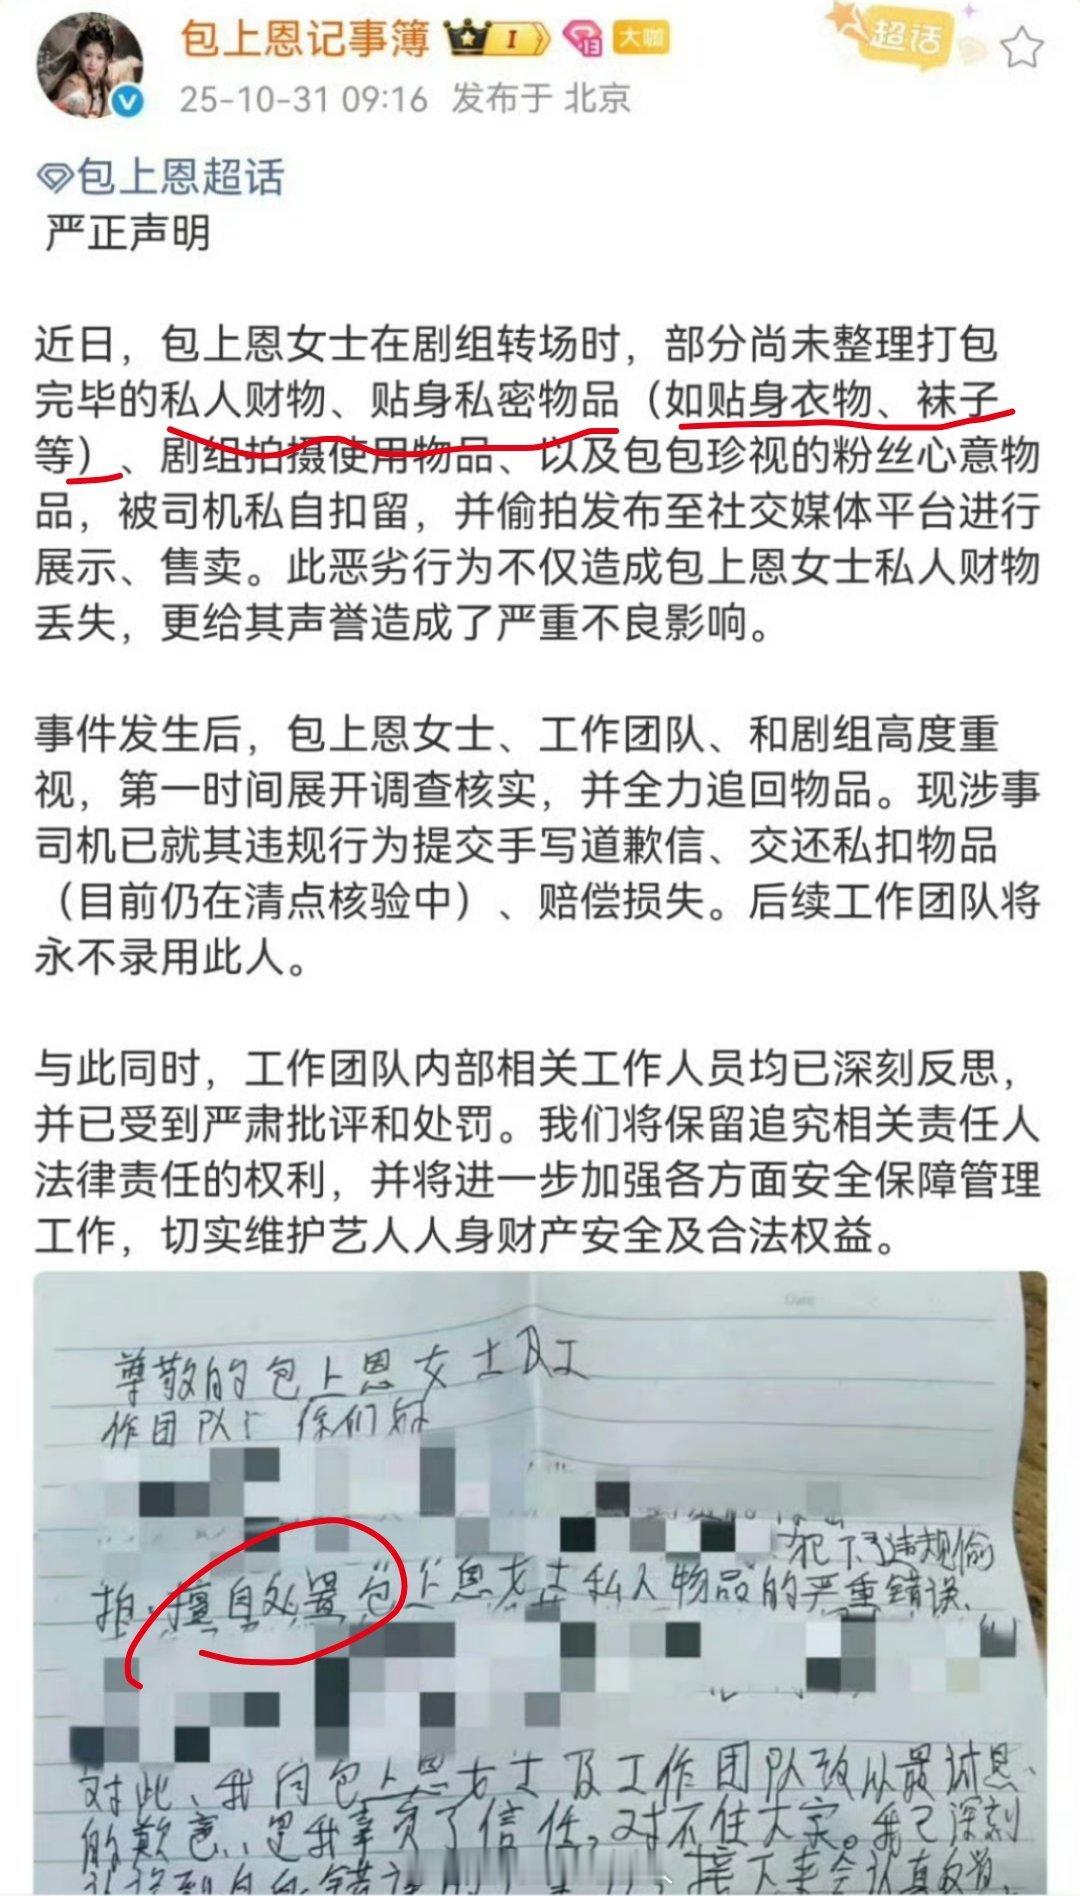 包上恩记事簿 I 大咖 超话
25-10-31 09:16 发布于 北京
包上恩超话
严正声明
近日，包上恩女士在剧组转场时，部分尚未整理打包
完毕的私人财物、贴身私密物品（如贴身衣物、袜子
等）、剧组拍摄使用物品、以及包包珍视的粉丝心意物
品，被司机私自扣留，并偷拍发布至社交媒体平台进行
展示、售卖。此恶劣行为不仅造成包上恩女士私人财物
丢失，更给其声誉造成了严重不良影响。
事件发生后，包上恩女士、工作团队、和剧组高度重
视，第一时间展开调查核实，并全力追回物品。现涉事
司机已就其违规行为提交手写道歉信、交还私扣物品
（目前仍在清点核验中）、赔偿损失。后续工作团队将
永不录用此人。
与此同时，工作团队内部相关工作人员均已深刻反思，
并已受到严肃批评和处罚。我们将保留追究相关责任人
法律责任的权利，并将进一步加强各方面安全保障管理
工作，切实维护艺人人身财产安全及合法权益。
尊敬的包上恩女士及工
作团队：你们好
犯下了违规偷
拍、擅自处置包上恩女士私人物品的严重错误、
对此、我向包上恩女士及工作团队致以最诚恳、
的歉意、是我辜负了信任，对不住大家。我已深刻
接下来会认真改